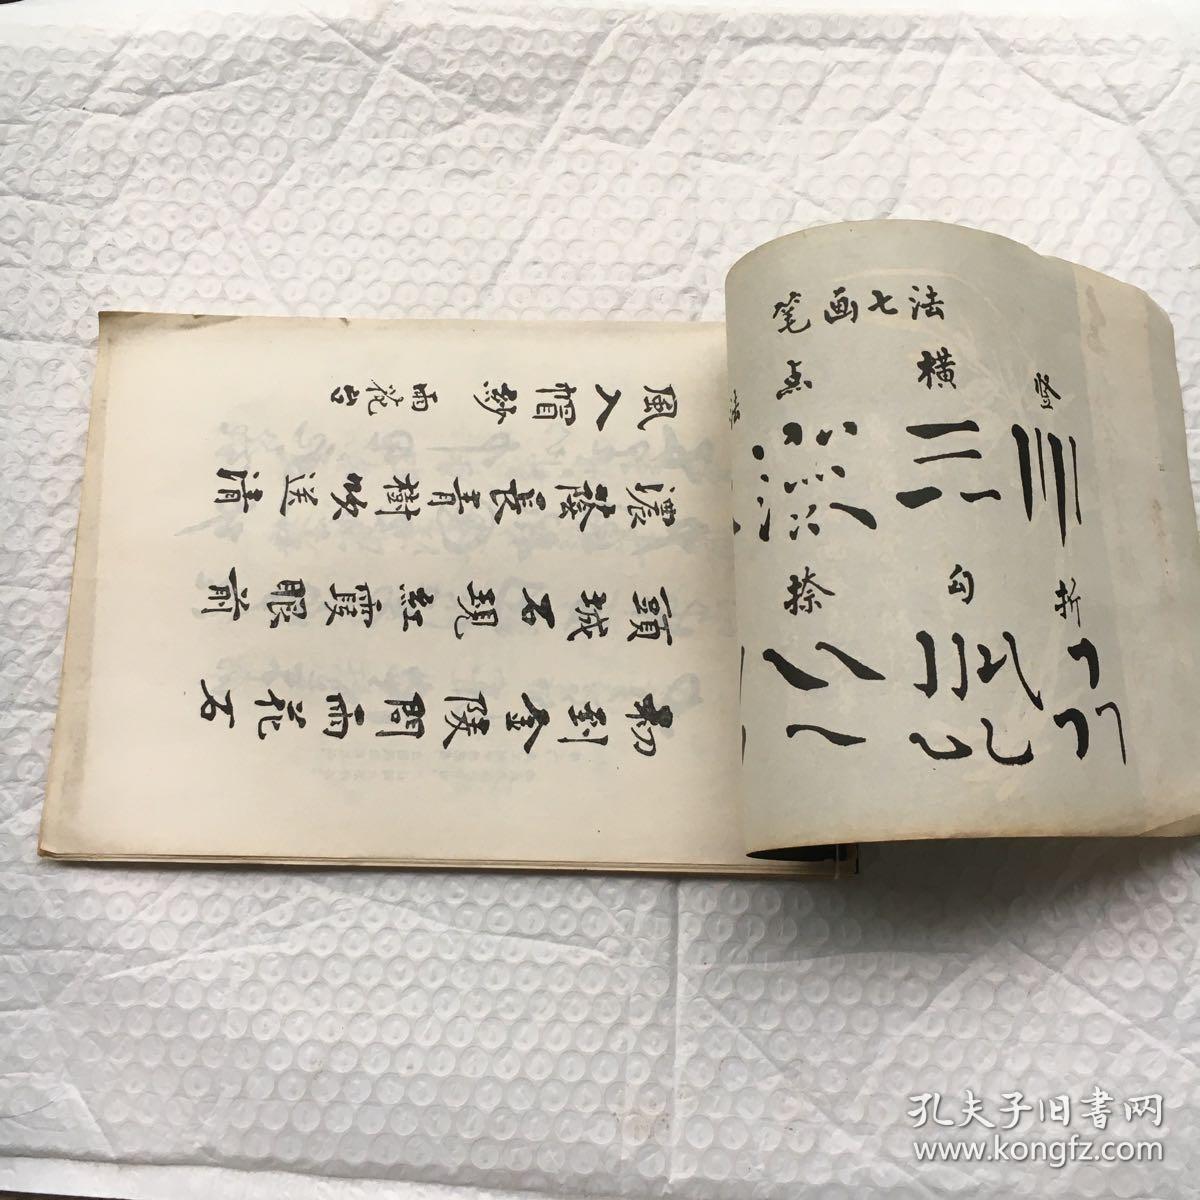 初到金陵問雨花石
頭城石現紅霞眼前
濃蔭長青樹吹送清
風入帽紗 雨花台
笔画七法
点 横 竖
捺 勾 折
孔夫子旧书网
www.kongfz.com